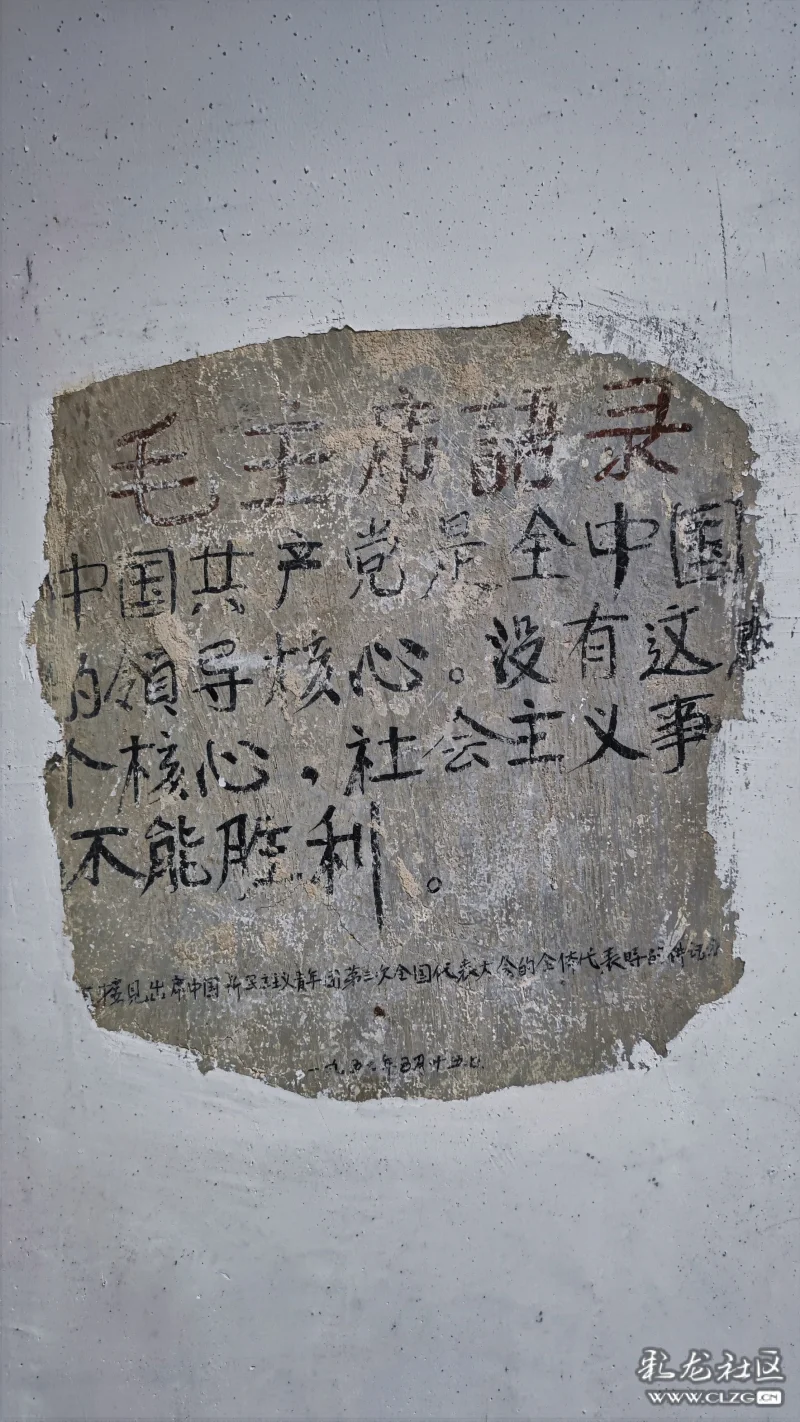 毛主席語录
中国共产党是全中国
的領导核心。没有这
个核心，社会主义事
不能胜利。
接見出席中国新民主主义青年团第三次全国代表大会的全体代表時的讲话
一九五 年五月十五日
彩龙社区
WWW.CLZG.CN